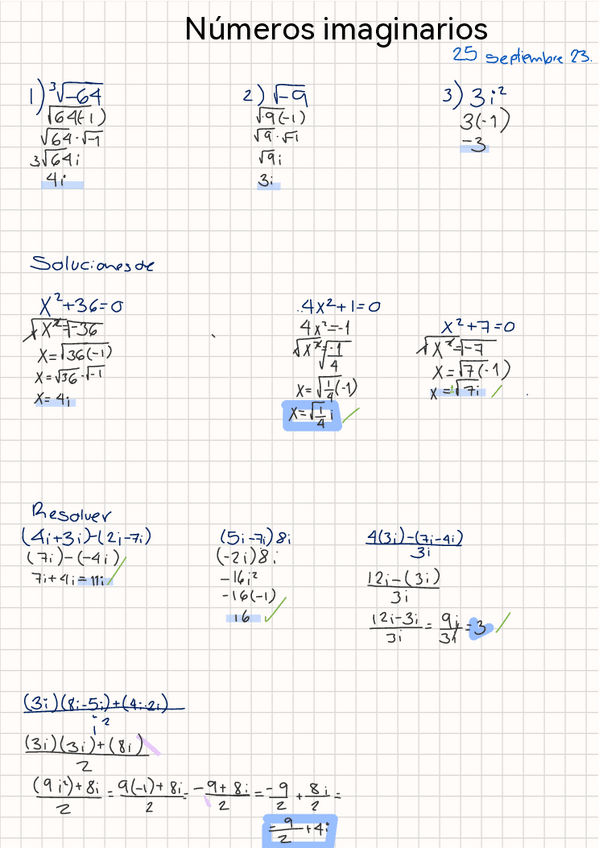 Números imaginarios
25 septiembre 23.
1) ³√-64
√64(-1)
√64·√-1
3√64 i
4i
2) √-9
√9(-1)
√9·√-1
√9i
3i
3) 3i²
3(-1)
-3
Soluciones de
x²+36=0
√x²=√-36
x=√36(-1)
x=√36·√-1
x=4i
4x²+1=0
4x²=-1
√x²=√-1/4
x=√1/4(-1)
x=√1/4 i ✓
x²+7=0
√x²=√-7
x=√7(-1)
x=√7i ✓
Resolver
(4i+3i)-(2i-7i)
(7i)-(-4i)
7i+4i=11i ✓
(5i-7i)8i
(-2i)8i
-16i²
-16(-1)
16 ✓
4(3i)-(7i-4i)
3i
12i-(3i)
3i
12i-3i/3i = 9i/3i = 3 ✓
(3i)(8i-5i)+(4i·2i)
i²
(3i)(3i)+(8i)
2
(9i²)+8i/2 = 9(-1)+8i/2 = -9+8i/2 = -9/2 + 8i/2 =
= 9/2 +4i